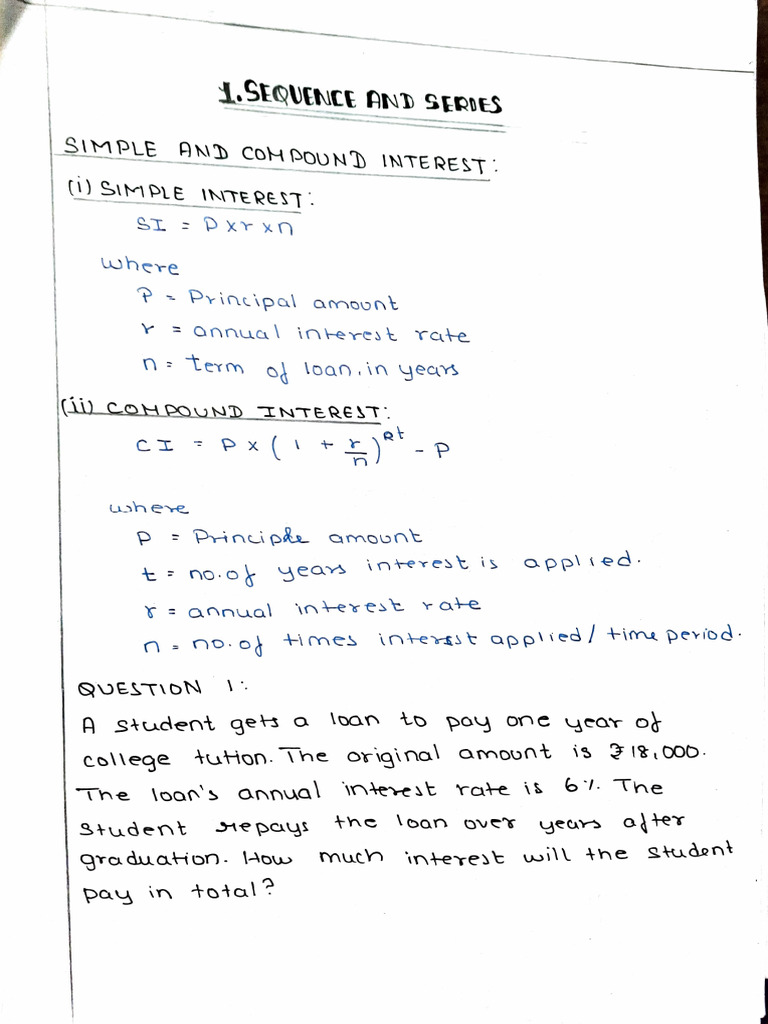 1. SEQUENCE AND SERIES
SIMPLE AND COMPOUND INTEREST:
(i) SIMPLE INTEREST:
SI = P x r x n
where
P = Principal amount
r = annual interest rate
n = term of loan, in years
(ii) COMPOUND INTEREST:
CI = P x (1 + r/n)^Rt - P
where
P = Principle amount
t = no. of years interest is applied.
r = annual interest rate
n = no. of times interest applied / time period.
QUESTION 1:
A student gets a loan to pay one year of
college tution. The original amount is ₹18,000.
The loan's annual interest rate is 6%. The
student repays the loan over years after
graduation. How much interest will the student
pay in total?